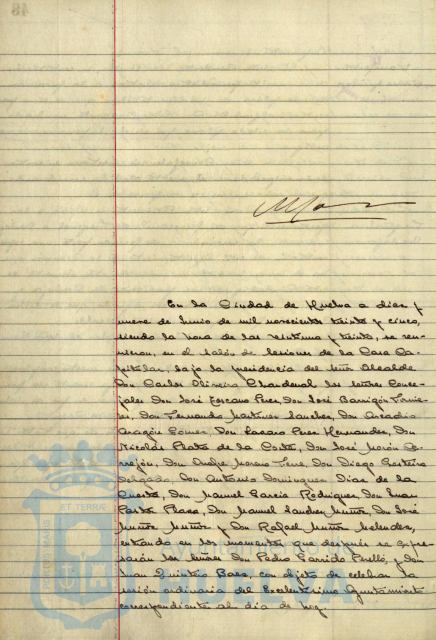 En la Ciudad de Huelva a diez y
nueve de Junio de mil novecientos treinta y cinco,
siendo la hora de las veintiuna y treinta, se reu-
nieron, en el salón de sesiones de la Casa Ca-
pitular, bajo la presidencia del Señor Alcalde
Don Carlos Oliveira Chardenal los señores Conce-
jales Don José Ponciano Perez, Don José Barrigón Fornie-
les, Don Fernando Martinez Sanchez, Don Arcadio
Aragón Gomez, Don Lazaro Perez Hernandez, Don
Nicolás Plata de la Corte, Don José Morón
Don Andrés Moreno Don Diego
Delgado, Don Antonio Dominguez Diaz de la
Cuesta, Don Manuel Garcia Rodriguez, Don Juan
Don Manuel Sanchez Muñoz, Don José
Muñoz Muñoz y Don Rafael Muñoz Melendez,
entrando en los momentos que después se expre-
sarán los señores Don Pedro Garrido Perelló, y Don
Juan Quintero Baez, con objeto de celebrar la
sesión ordinaria del Excelentísimo Ayuntamiento
correspondiente al dia de hoy.